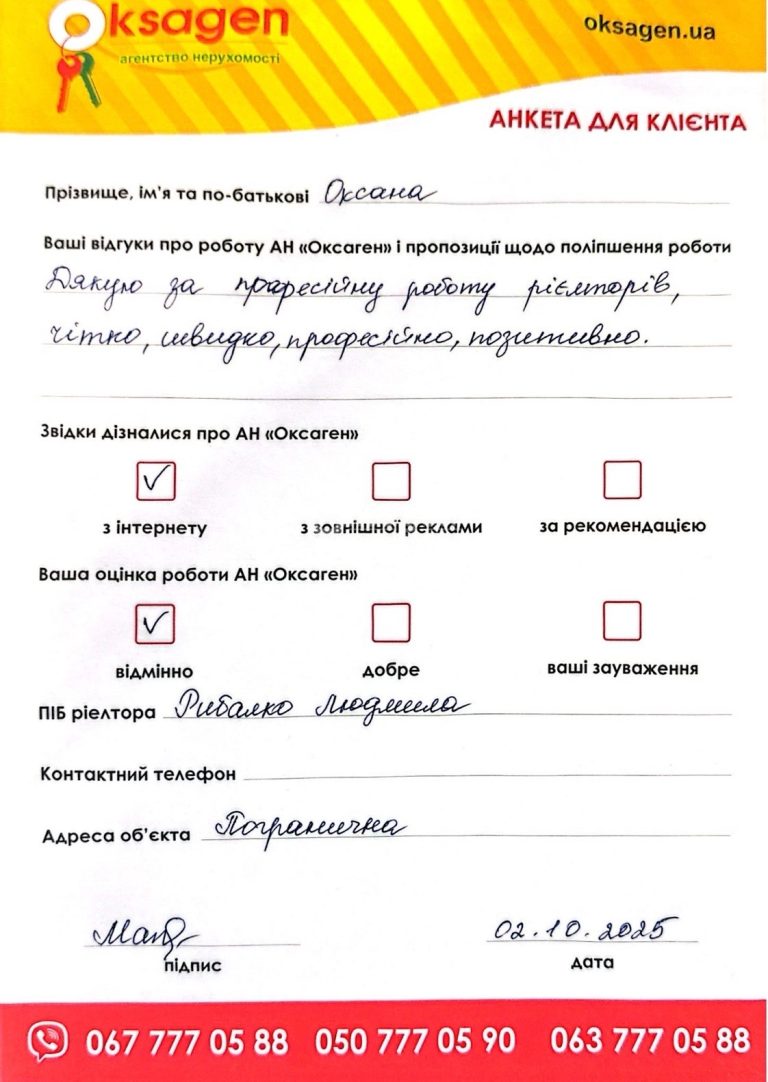 Oksagen
агентство нерухомості
oksagen.ua
АНКЕТА ДЛЯ КЛІЄНТА
Прізвище, ім'я та по-батькові Оксана
Ваші відгуки про роботу АН «Оксаген» і пропозиції щодо поліпшення роботи
Дякую за професійну роботу рієлторів,
чітко, швидко, професійно, позитивно.
Звідки дізналися про АН «Оксаген»
з інтернету з зовнішної реклами за рекомендацією
Ваша оцінка роботи АН «Оксаген»
відмінно добре ваші зауваження
ПІБ ріелтора Рибалко Людмила
Контактний телефон
Адреса об'єкта Погранична
02.10.2025
підпис дата
067 777 05 88 050 777 05 90 063 777 05 88